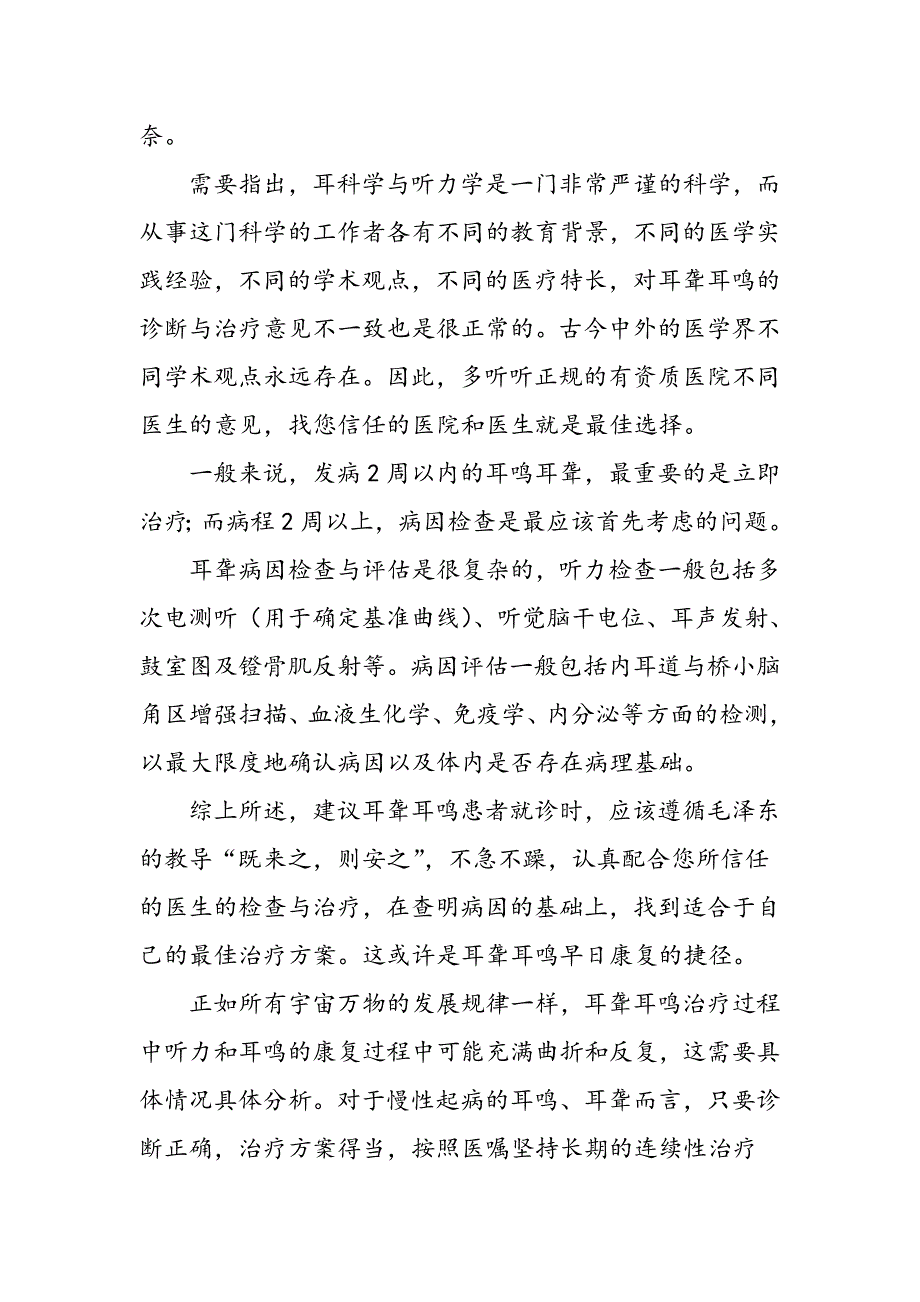 奈。
需要指出，耳科学与听力学是一门非常严谨的科学，而
从事这门科学的工作者各有不同的教育背景，不同的医学实
践经验，不同的学术观点，不同的医疗特长，对耳聋耳鸣的
诊断与治疗意见不一致也是很正常的。古今中外的医学界不
同学术观点永远存在。因此，多听听正规的有资质医院不同
医生的意见，找您信任的医院和医生就是最佳选择。
一般来说，发病2周以内的耳鸣耳聋，最重要的是立即
治疗；而病程2周以上，病因检查是最应该首先考虑的问题。
耳聋病因检查与评估是很复杂的，听力检查一般包括多
次电测听（用于确定基准曲线）、听觉脑干电位、耳声发射、
鼓室图及镫骨肌反射等。病因评估一般包括内耳道与桥小脑
角区增强扫描、血液生化学、免疫学、内分泌等方面的检测，
以最大限度地确认病因以及体内是否存在病理基础。
综上所述，建议耳聋耳鸣患者就诊时，应该遵循毛泽东
的教导“既来之，则安之”，不急不躁，认真配合您所信任
的医生的检查与治疗，在查明病因的基础上，找到适合于自
己的最佳治疗方案。这或许是耳聋耳鸣早日康复的捷径。
正如所有宇宙万物的发展规律一样，耳聋耳鸣治疗过程
中听力和耳鸣的康复过程中可能充满曲折和反复，这需要具
体情况具体分析。对于慢性起病的耳鸣、耳聋而言，只要诊
断正确，治疗方案得当，按照医嘱坚持长期的连续性治疗